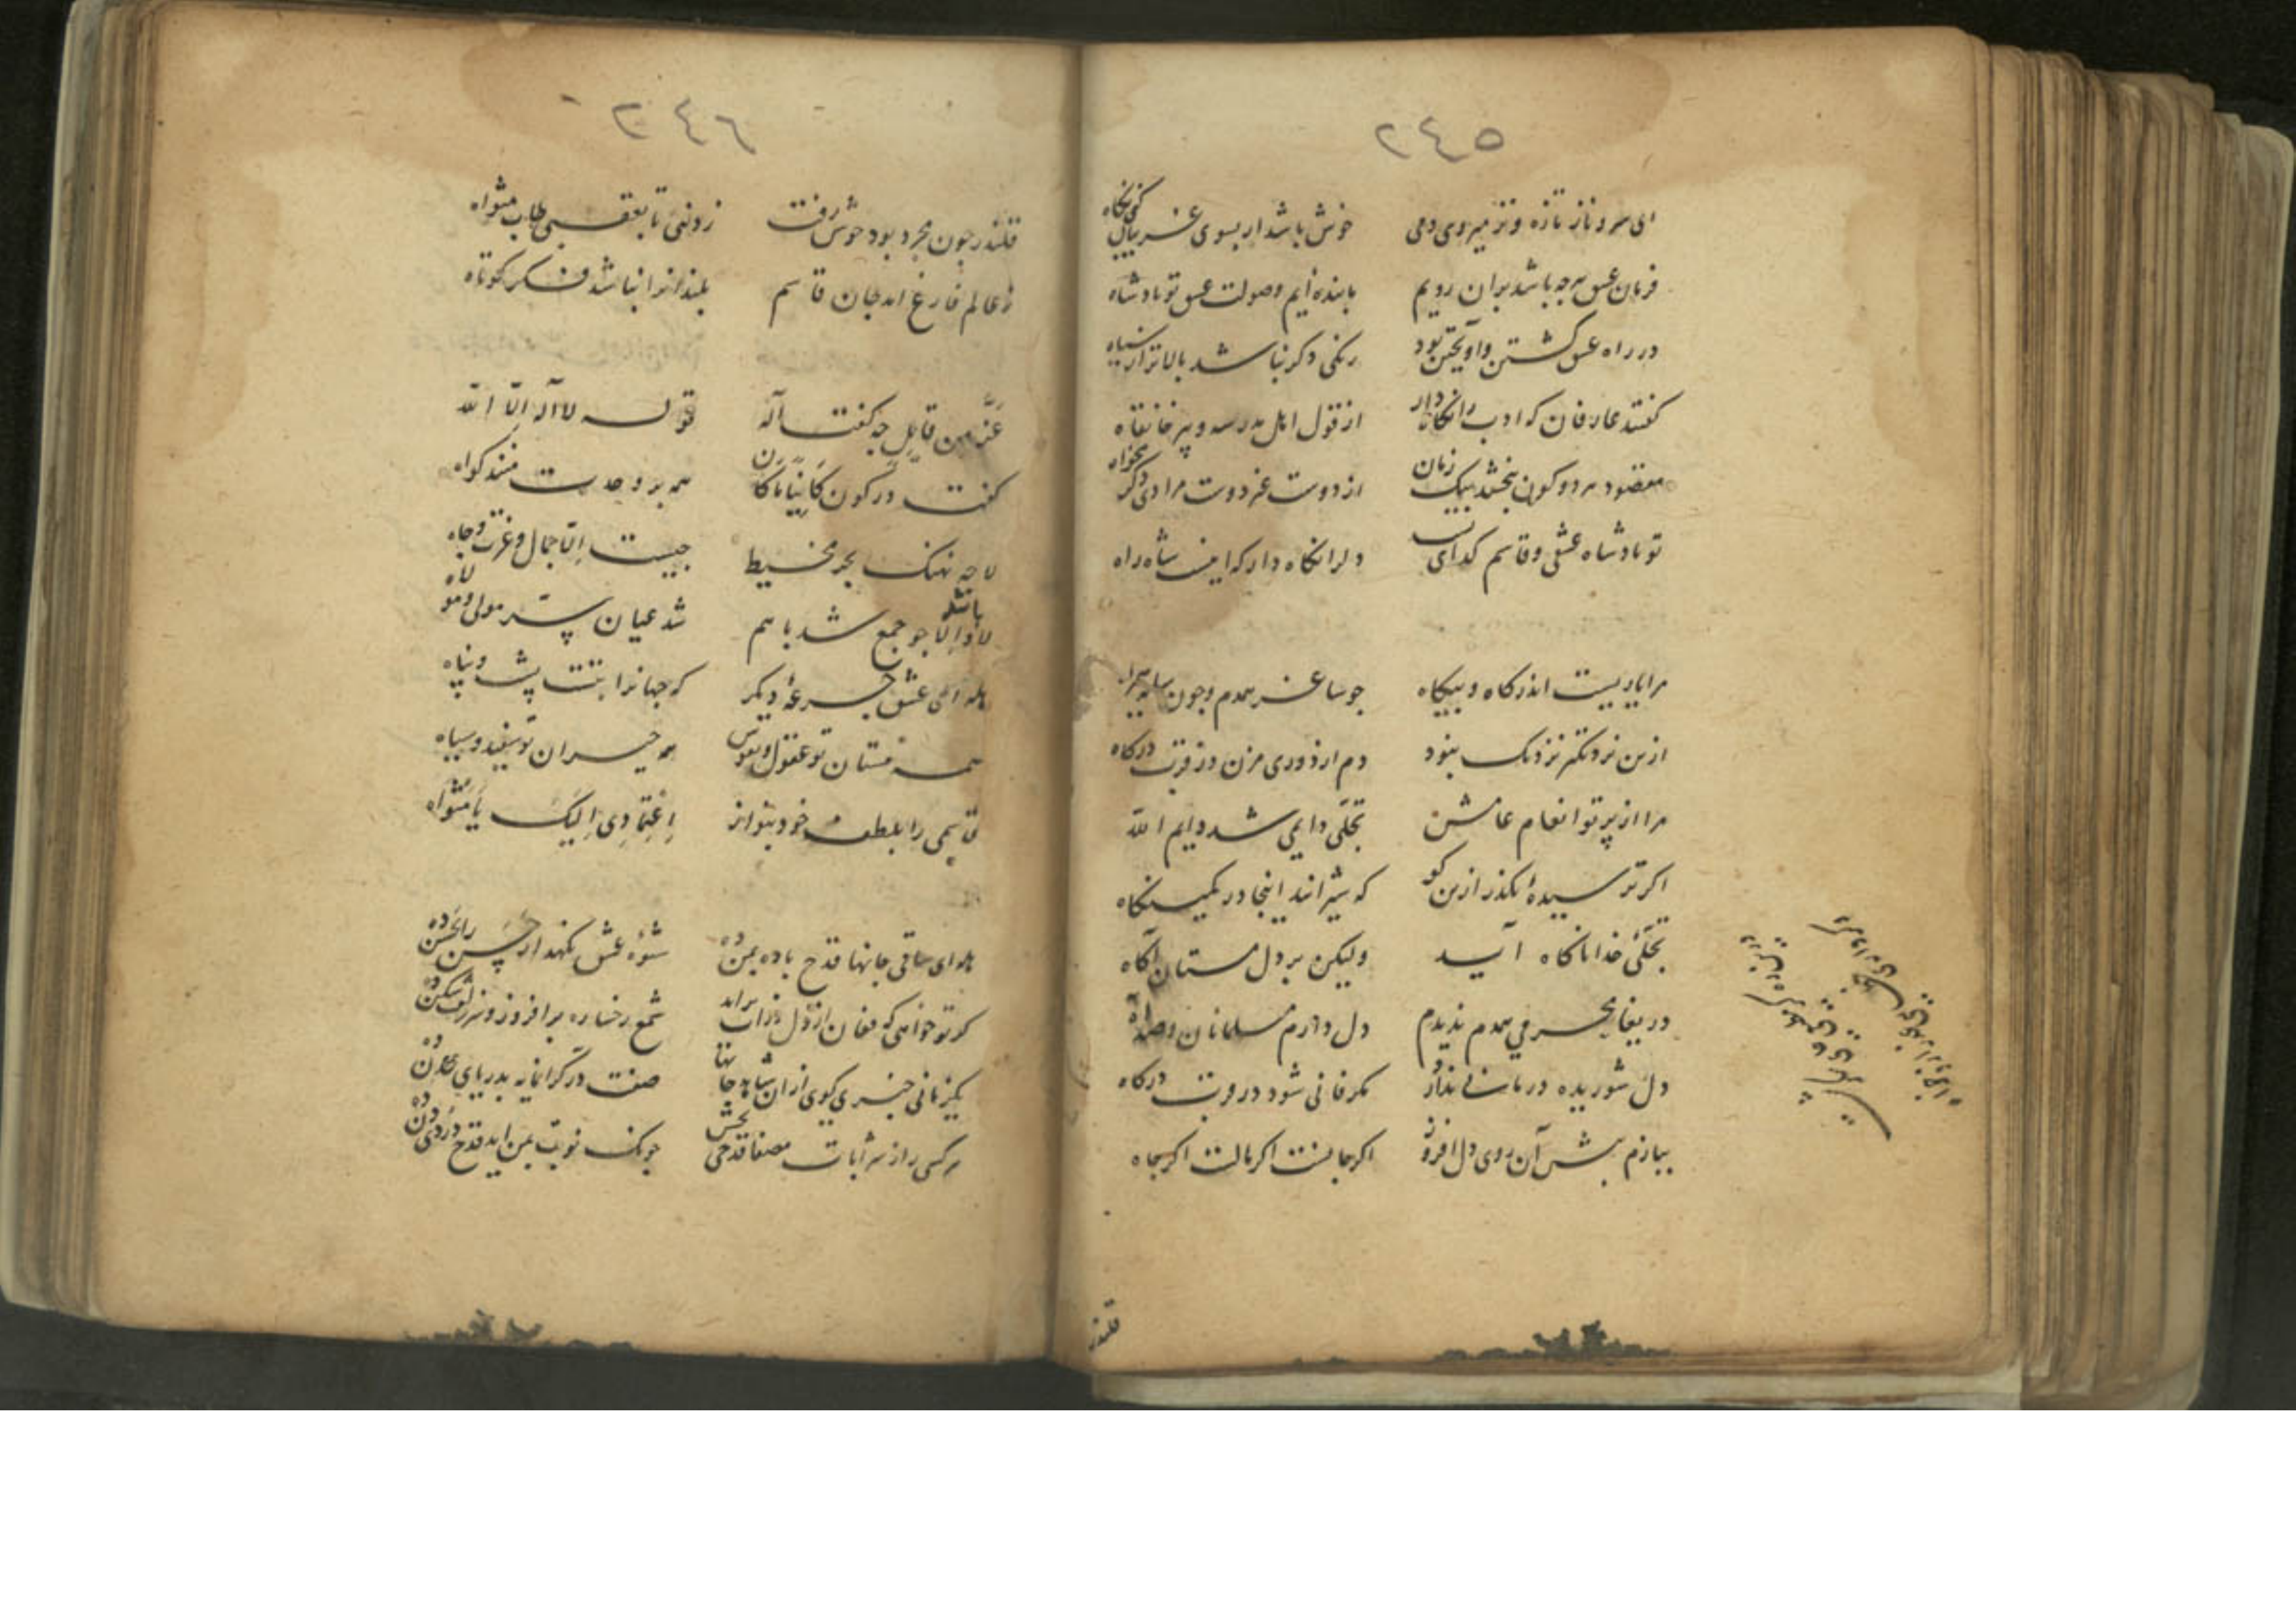 ٢٤٥
ای سرو ناز تازه و تر میروی دمی خوش باشد ار بسوی غریبان کنی نگاه
فرمان عشق هرچه باشد بران رویم ما بنده ایم و صولت عشق تو پادشاه
در راه عشق کشتن و آویختن بود رنکی دکر نباشد بالاتر از سیاه
کفتند عارفان که ادب را نکاه دار از قول اهل مدرسه و پیر خانقاه
مقصود هر دو کون ببخشد بیک زمان از دوست غیر دوست مرادی دکر مخواه
تو پادشاه عشقی و قاسم کدای تست دلرا نکاه دار که اینست شاه راه
مرا یاریست اندر کاه و بیکاه چو ساغر همدم و چون سایه همراه
ازین نزدیکتر نزدیک نبود دم از دوری مزن در قرب درکاه
مرا از پرتو انعام عامش تجلی دایمی شد دایم الله
اکر ترسیدهٔ بکذر ازین کو که شیرانند اینجا در کمینکاه
تجلی خدا ناکاه آید ولیکن بر دل مستان آکاه
دریغا محرمی همدم ندیدم دل دارم مسلمانان و صد آه
دل شوریده درمانی ندارد مکر فانی شود در قرب درکاه
ببازم پیش آن روی دل افروز اکر جانست اکر مالست اکر جاه
قلندر
٢٤٦
قلندر چون مجرد بود خوش رفت ز دنیی تا بعقبی طاب مثواه
ز عالم فارغ آمد جان قاسم بلندانرا نباشد فکر کوتاه
عز من قایل چه کفت آله قوله لا آله الا الله
کفت در کون کاینا ما کان همه بر وحدت منند کواه
لا چه نهنک بحر محیط چیست الا جمال و عزت و جاه
لا و الا چو جمع شد باهم شد عیان سر مولی و مولاه
هله ای عشق جرعهٔ دیکر که جهانرا بتست پشت و پناه
همه مستان تو عقول و نفوس همه حیران تو سفید و سیاه
قاسمی را بلطف خود بنواز اعتمادی الیک یا مثواه
هله ای ساقی جانها قدح باده بمن ده شیوهٔ عشق
کر تو خواهی که فغان از دل ذرات براید شمع رخساره برافروز و سر زلف شکن ده
یکزمانی خبری کوی از ان شاهد جانها صفت در کرانمایه بدریای عدن ده
هر کسی را ز شرابات مصفا قدحی بخش چونک نوبت بمن اید قدح دردی دن ده